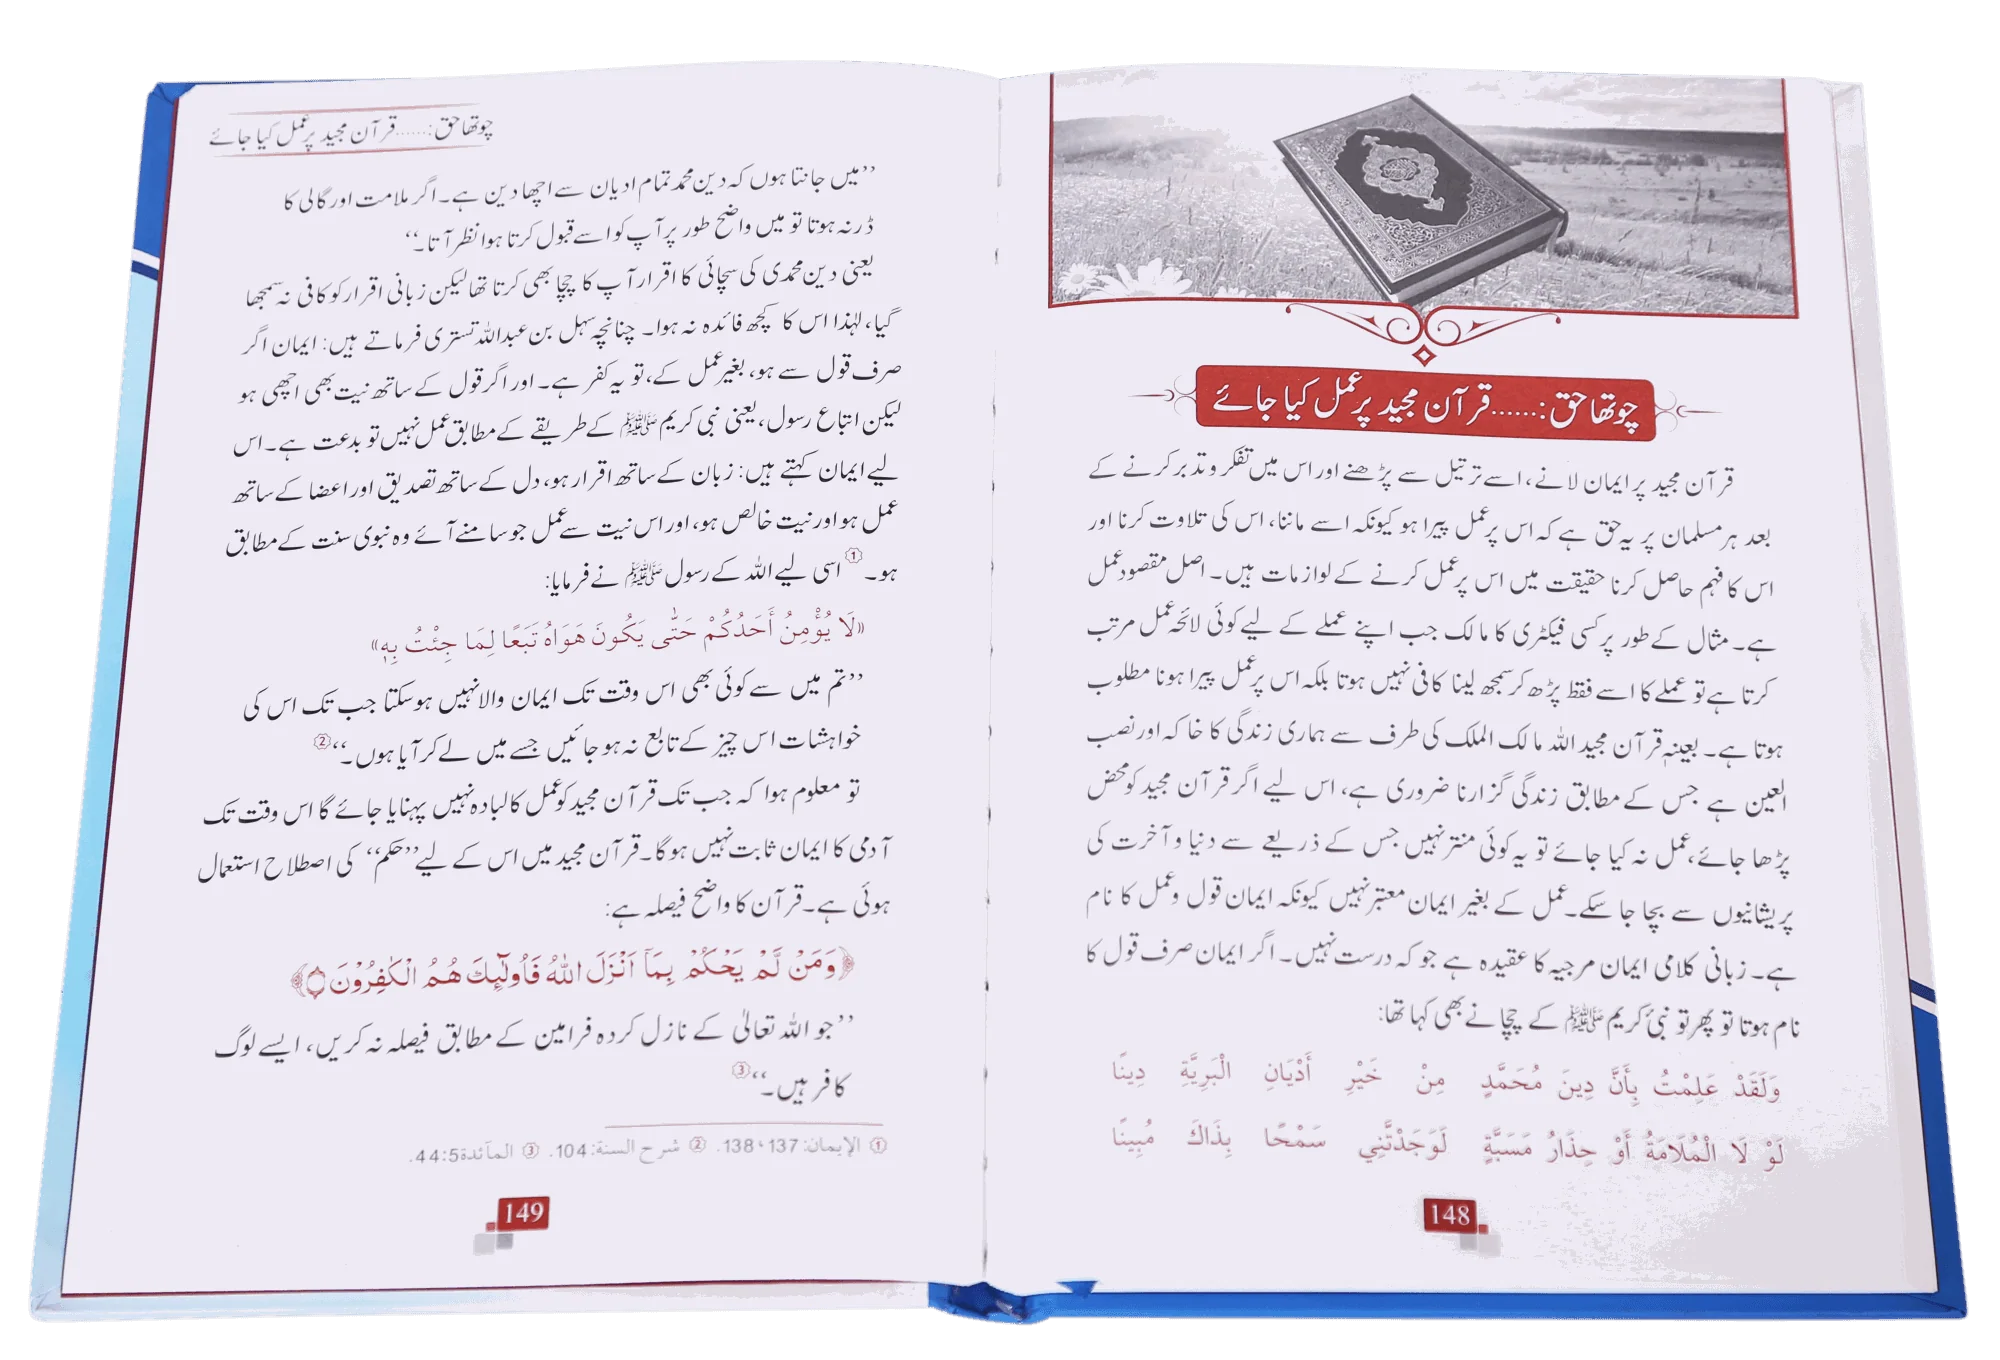 چوتھا حق :......قرآن مجید پر عمل کیا جائے
قرآن مجید پر ایمان لانے، اسے ترتیل سے پڑھنے اور اس میں تفکر و تدبر کرنے کے
بعد ہر مسلمان پر یہ حق ہے کہ اس پر عمل پیرا ہو کیونکہ اسے ماننا، اس کی تلاوت کرنا اور
اس کا فہم حاصل کرنا حقیقت میں اس پر عمل کرنے کے لوازمات ہیں۔ اصل مقصود عمل
ہے۔ مثال کے طور پر کسی فیکٹری کا مالک جب اپنے عملے کے لیے کوئی لائحہ عمل مرتب
کرتا ہے تو عملے کا اسے فقط پڑھ کر سمجھ لینا کافی نہیں ہوتا بلکہ اس پر عمل پیرا ہونا مطلوب
ہوتا ہے۔ بعینہٖ قرآن مجید اللہ مالک الملک کی طرف سے ہماری زندگی کا خاکہ اور نصب
العین ہے جس کے مطابق زندگی گزارنا ضروری ہے، اس لیے اگر قرآن مجید کو محض
پڑھا جائے، عمل نہ کیا جائے تو یہ کوئی منتر نہیں جس کے ذریعے سے دنیا و آخرت کی
پریشانیوں سے بچا جا سکے۔ عمل کے بغیر ایمان معتبر نہیں کیونکہ ایمان قول و عمل کا نام
ہے۔ زبانی کلامی ایمان مرجیہ کا عقیدہ ہے جو کہ درست نہیں۔ اگر ایمان صرف قول کا
نام ہوتا تو پھر تو نبیٔ کریم ﷺ کے چچا نے بھی کہا تھا:
وَلَقَدْ عَلِمْتُ بِأَنَّ دِينَ مُحَمَّدٍ مِنْ خَيْرِ أَدْيَانِ الْبَرِيَّةِ دِينًا
لَوْ لَا الْمُلَامَةُ أَوْ حِذَارُ مَسَبَّةٍ لَوَجَدْتَّنِي سَمْحًا بِذَاكَ مُبِينًا
148
چوتھا حق :......قرآن مجید پر عمل کیا جائے
’’میں جانتا ہوں کہ دین محمد تمام ادیان سے اچھا دین ہے۔ اگر ملامت اور گالی کا
ڈر نہ ہوتا تو میں واضح طور پر آپ کو اسے قبول کرتا ہوا نظر آتا۔‘‘
یعنی دین محمدی کی سچائی کا اقرار آپ کا چچا بھی کرتا تھا لیکن زبانی اقرار کو کافی نہ سمجھا
گیا، لہٰذا اس کا کچھ فائدہ نہ ہوا۔ چنانچہ سہل بن عبداللہ تستری فرماتے ہیں: ایمان اگر
صرف قول سے ہو، بغیر عمل کے، تو یہ کفر ہے۔ اور اگر قول کے ساتھ نیت بھی اچھی ہو
لیکن اتباع رسول، یعنی نبی کریم ﷺ کے طریقے کے مطابق عمل نہیں تو بدعت ہے۔ اس
لیے ایمان کہتے ہیں: زبان کے ساتھ اقرار ہو، دل کے ساتھ تصدیق اور اعضا کے ساتھ
عمل ہو اور نیت خالص ہو، اور اس نیت سے عمل جو سامنے آئے وہ نبوی سنت کے مطابق
ہو۔① اسی لیے اللہ کے رسول ﷺ نے فرمایا:
«لَا يُؤْمِنُ أَحَدُكُمْ حَتّٰى يَكُونَ هَوَاهُ تَبَعًا لِمَا جِئْتُ بِهٖ»
’’تم میں سے کوئی بھی اس وقت تک ایمان والا نہیں ہو سکتا جب تک اس کی
خواہشات اس چیز کے تابع نہ ہو جائیں جسے میں لے کر آیا ہوں۔‘‘②
تو معلوم ہوا کہ جب تک قرآن مجید کو عمل کا لبادہ نہیں پہنایا جائے گا اس وقت تک
آدمی کا ایمان ثابت نہیں ہوگا۔ قرآن مجید میں اس کے لیے ’’حکم‘‘ کی اصطلاح استعمال
ہوئی ہے۔ قرآن کا واضح فیصلہ ہے:
﴿وَمَنْ لَّمْ يَحْكُمْ بِمَآ اَنْزَلَ اللهُ فَاُولٰٓئِكَ هُمُ الْكٰفِرُوْنَ ۝﴾
’’جو اللہ تعالیٰ کے نازل کردہ فرامین کے مطابق فیصلہ نہ کریں، ایسے لوگ
کافر ہیں۔‘‘③
① الإيمان: 137، 138. ② شرح السنة: 104. ③ المآئدة 44:5.
149